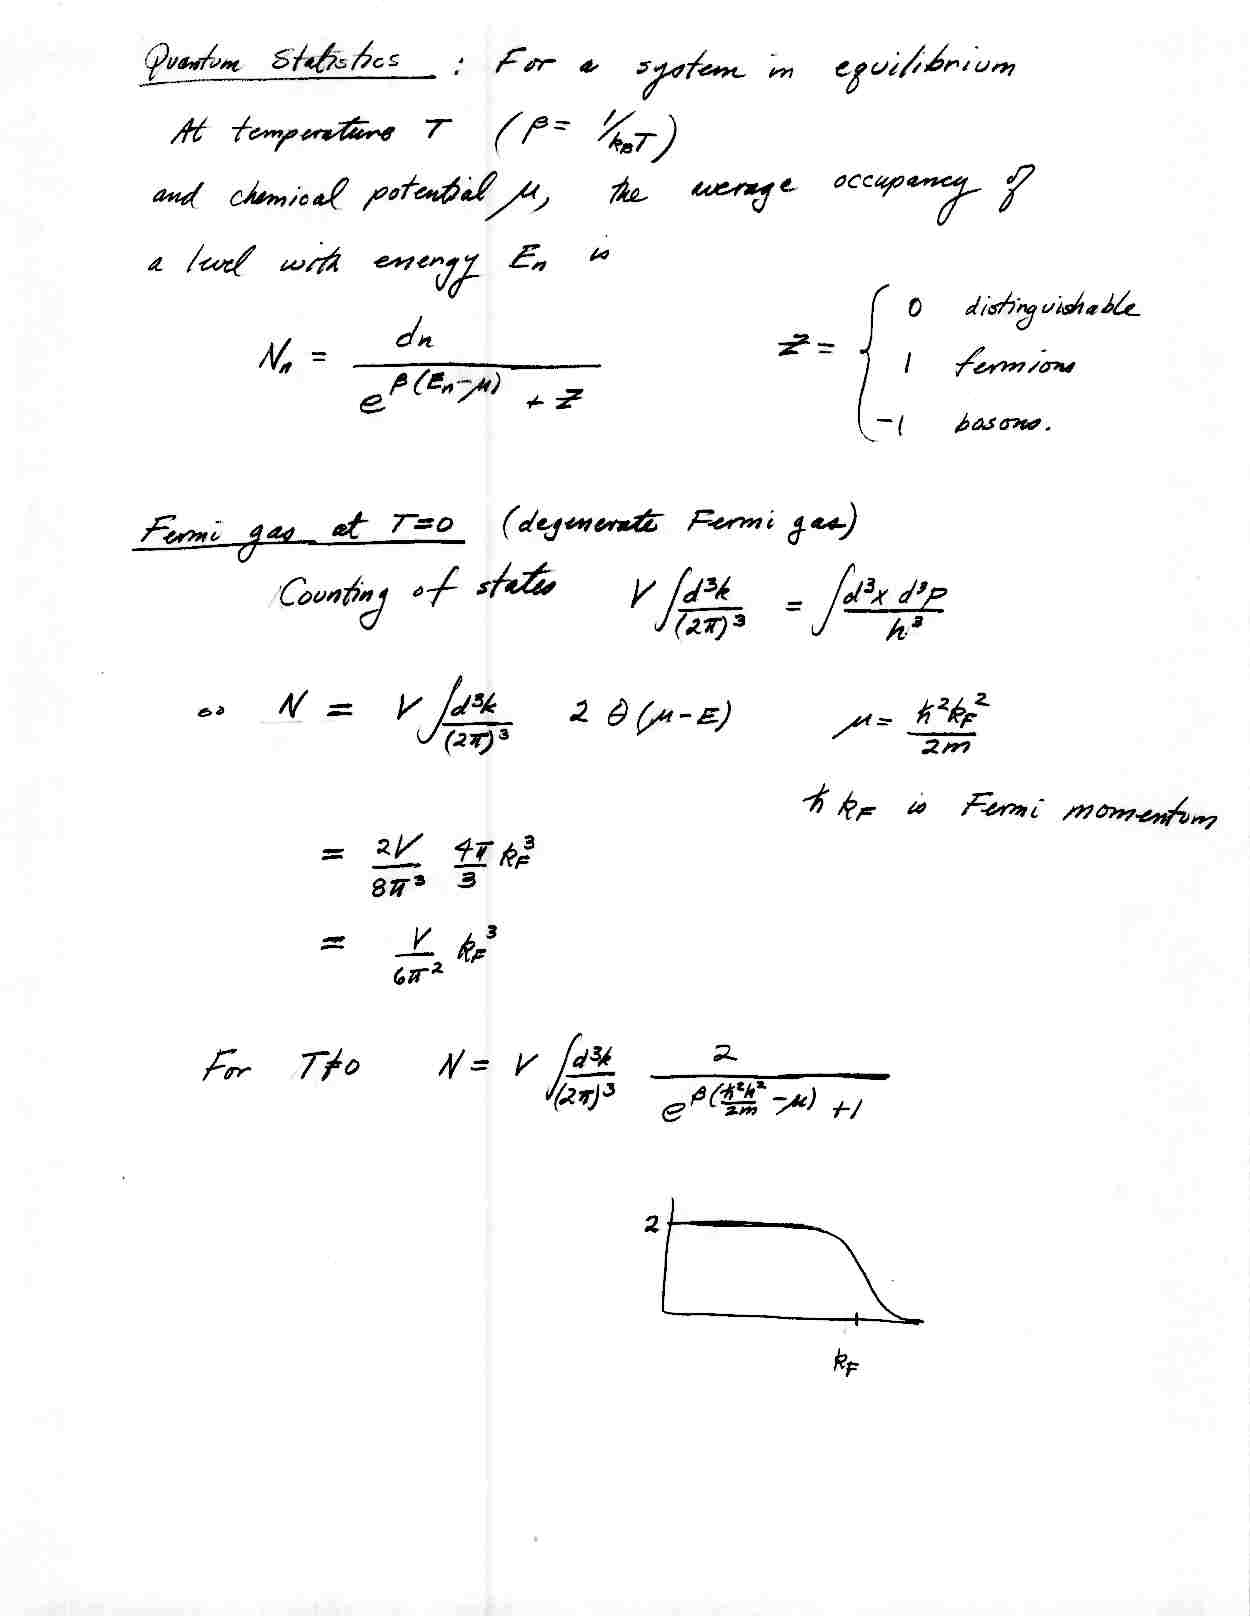 Quantum Statistics : For a system in equilibrium
At temperature T (β = 1/k_BT)
and chemical potential μ, the average occupancy of
a level with energy En is
N_n = d_n / (e^{β(E_n-μ)} + Z) Z = { 0 distinguishable
1 fermions
-1 bosons.
Fermi gas at T=0 (degenerate Fermi gas)
Counting of states V ∫ d³k/(2π)³ = ∫ d³x d³p / h³
∞ N = V ∫ d³k/(2π)³ 2 θ(μ-E) μ = ħ²k_F²/2m
ħ k_F is Fermi momentum
= 2V/8π³ 4π/3 k_F³
= V/6π² k_F³
For T≠0 N = V ∫ d³k/(2π)³ 2 / (e^{β(ħ²k²/2m - μ)} +1)
2
k_F